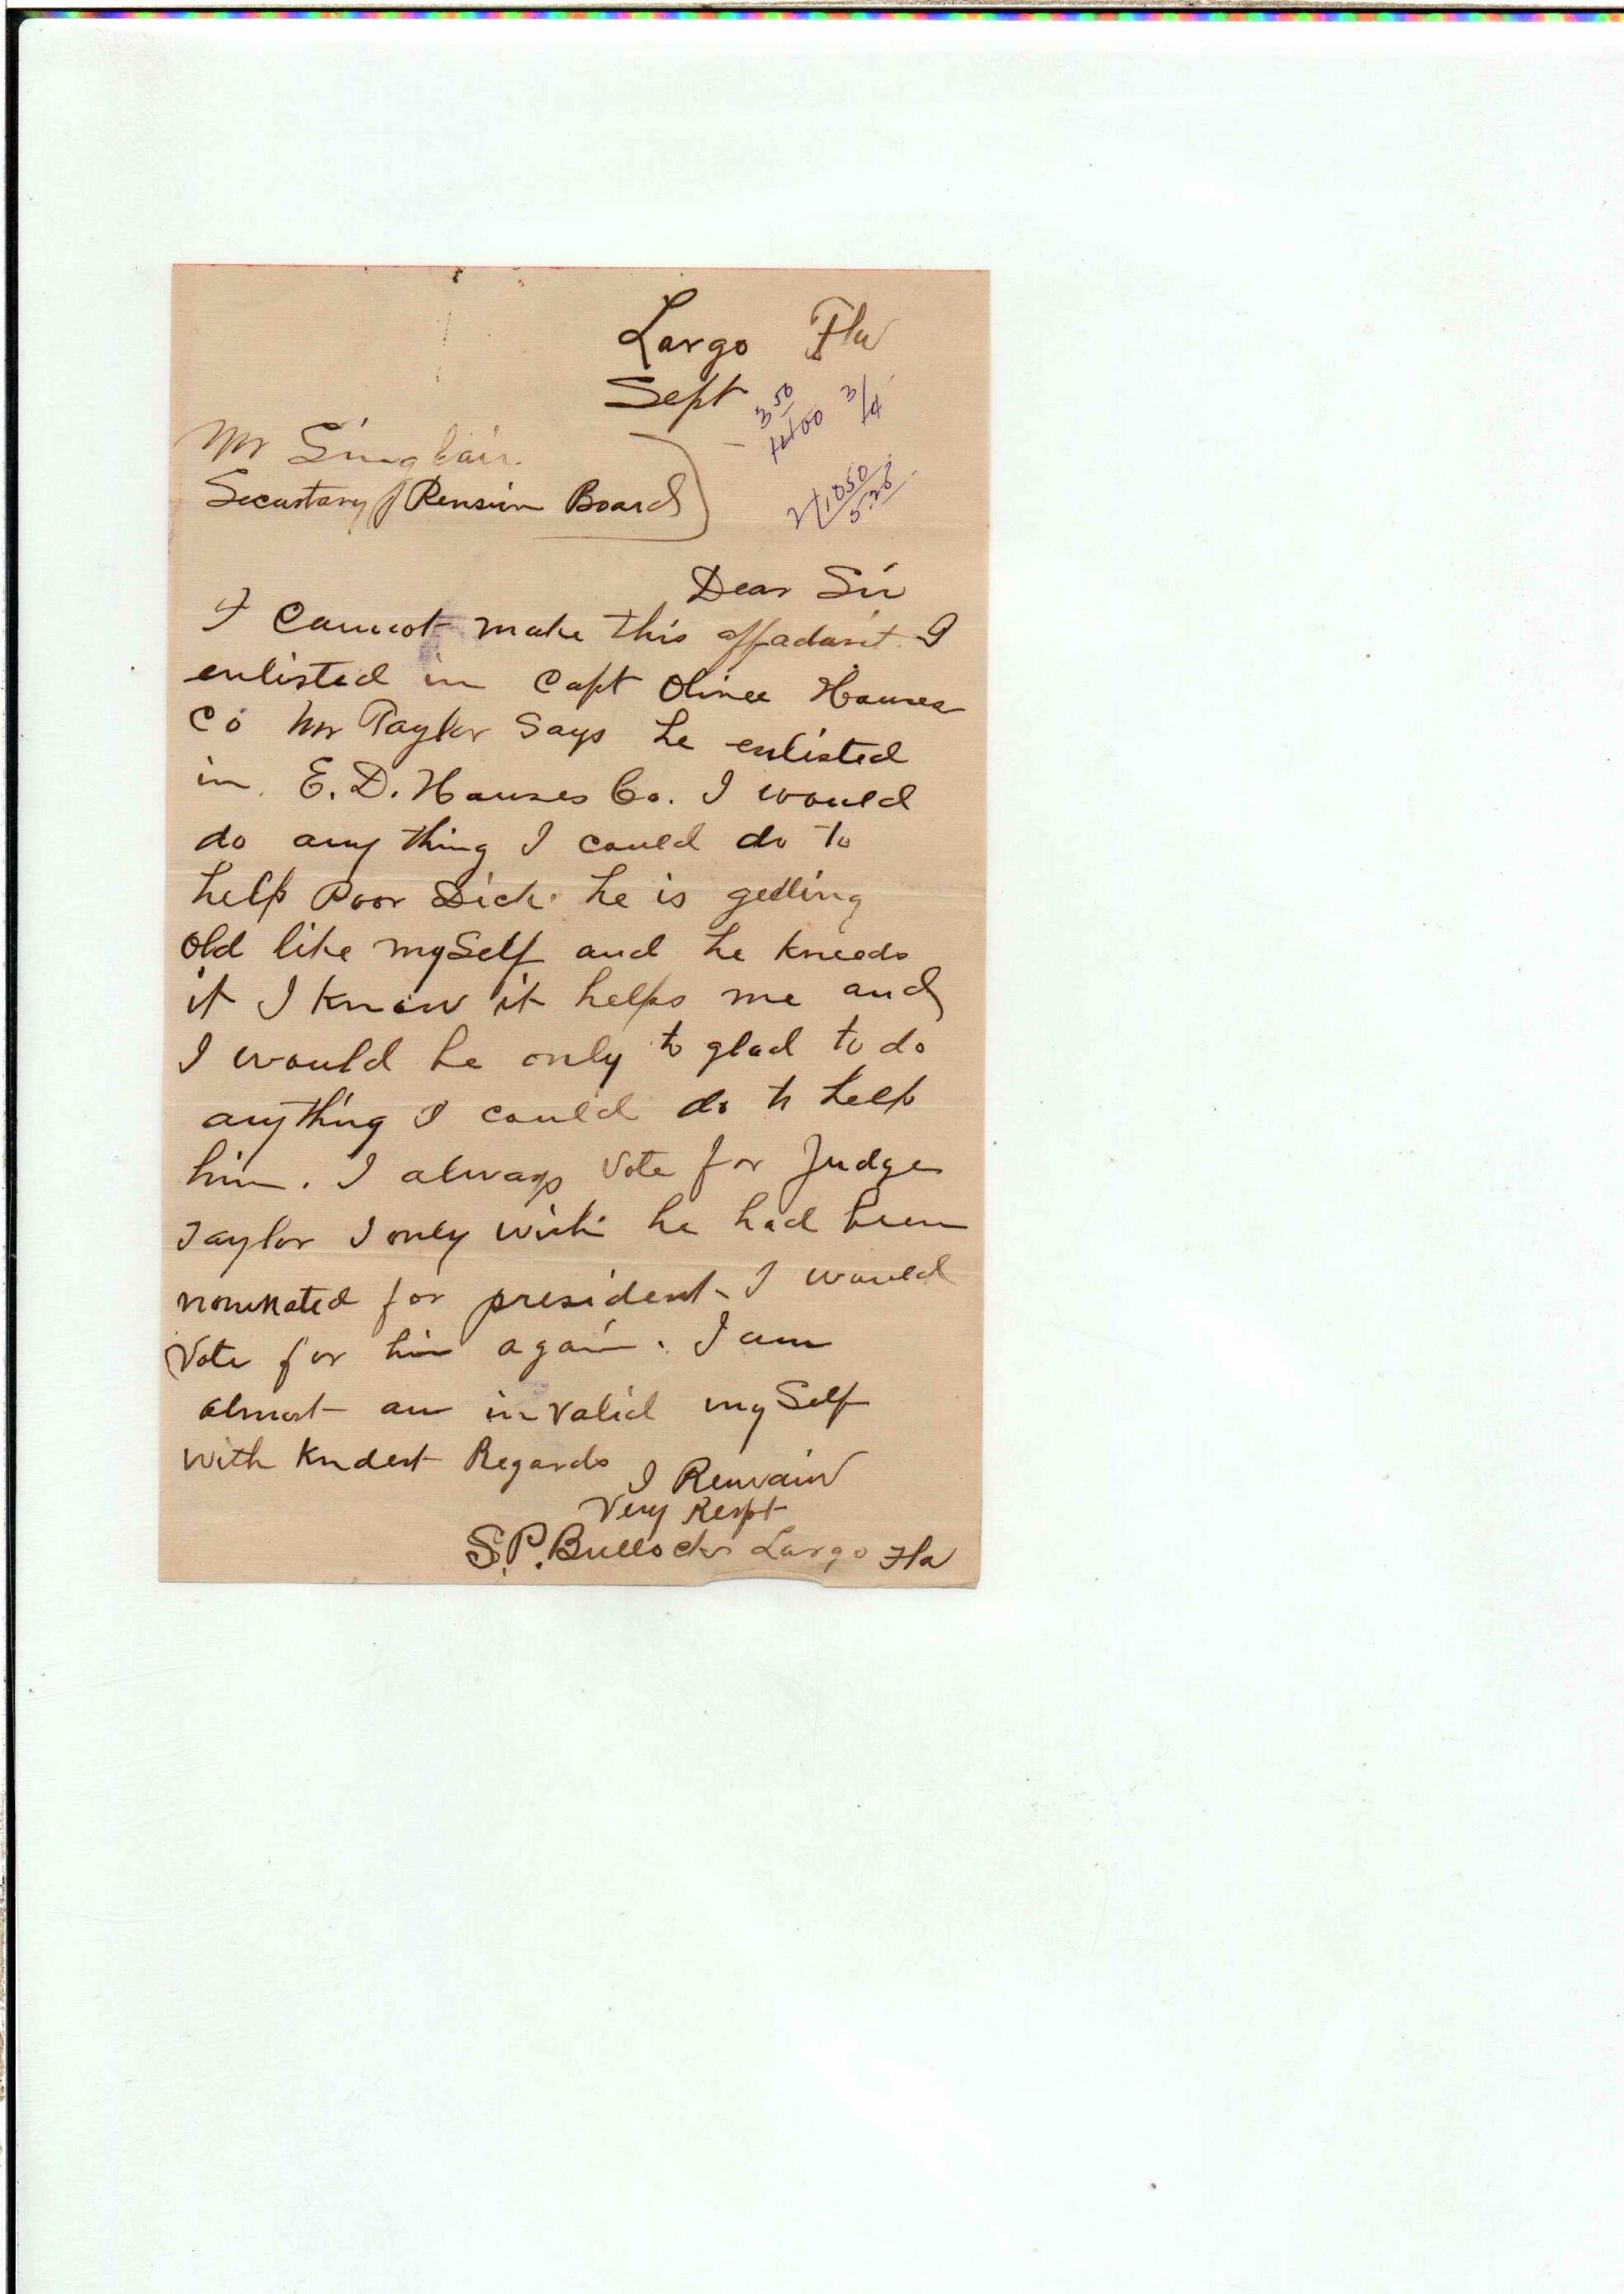 Largo Fla
Sept
3 50 3/4
Mr Singlair.
Secustary Pension Board
21,050
5.28
Dear Sir
I Cannot make this affadavit I
enlisted in Capt Olivee Houses
Co Mr Taylor Says he enlisted
in E.D. Houses Co. I would
do any thing I could do to
help Poor Dick. he is getting
old like mySelf and he kneeds
it I know it helps me and
I would be only to glad to do
anything I could do to help
him. I always Vote for Judge
Taylor I only wish he had been
nominated for president I would
Vote for him again. I am
almost an invalid mySelf
With Kndest Regards I Remain
Very Respt
S.P. Bullock Largo Fla